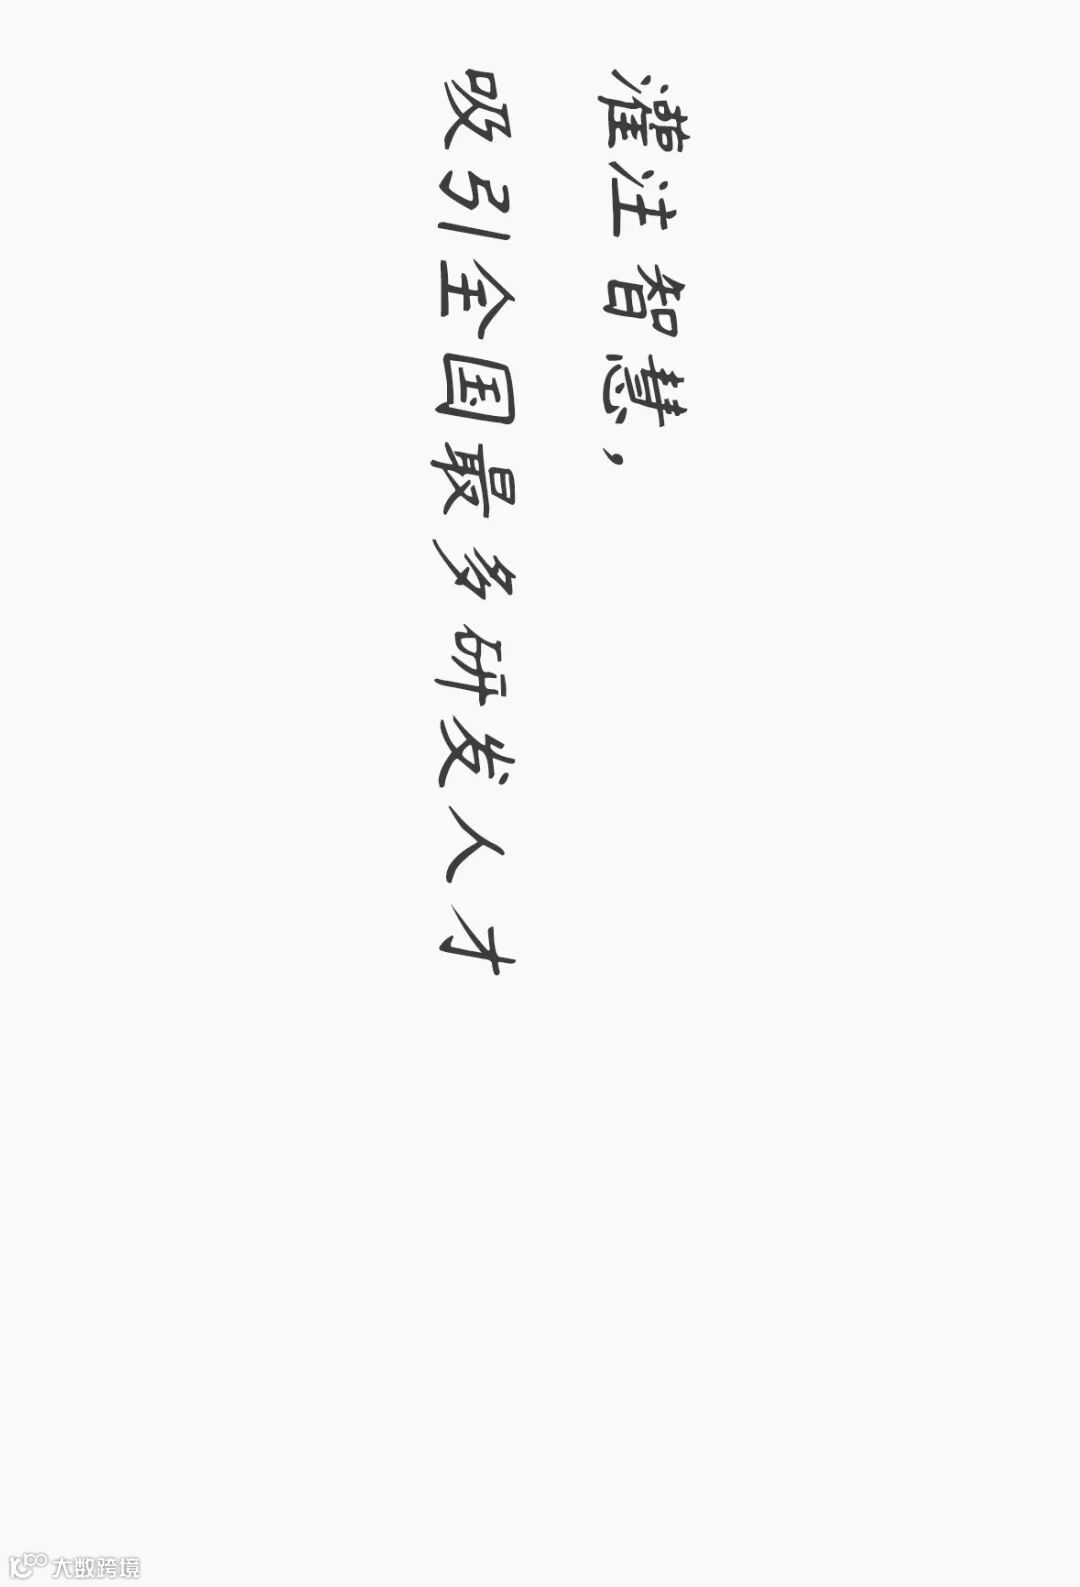 灌注智慧，
吸引全国最多研发人才
大数跨境